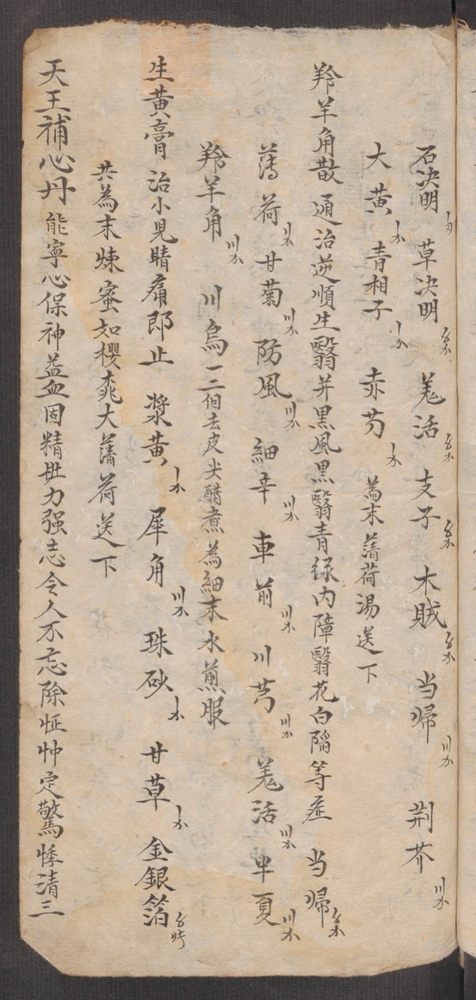 石决明 草决明 羌活 支子 木賊 当帰 荆芥
大黄 青相子 赤芍 為末薄荷湯送下
羚羊角散 通治逆順生翳并黒風黒翳青綠内障翳花白陷等症 当帰
薄荷 甘菊 防風 細辛 車前 川芎 羌活 半夏
羚羊角 川烏 一二個去皮尖醋煮為細末水煎服
生黄膏 治小児睛痛即止 漿黄 犀角 珠砂 甘草 金銀箔
共為末煉蜜如櫻桃大薄荷送下
天王補心丹 能寧心保神益血固精壯力強志令人不忘除怔忡定驚悸清三